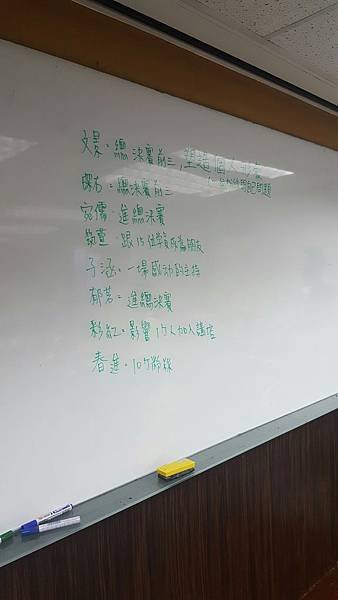 文景：總決賽前三，塑造個人形象
傑石：總決賽前三
宛儒：進總決賽
筑萱：跟15位學員成為朋友
子涵：一場感動的主持
郁茗：進總決賽
彩紅：影響1万人加入講座
春進：10万粉絲